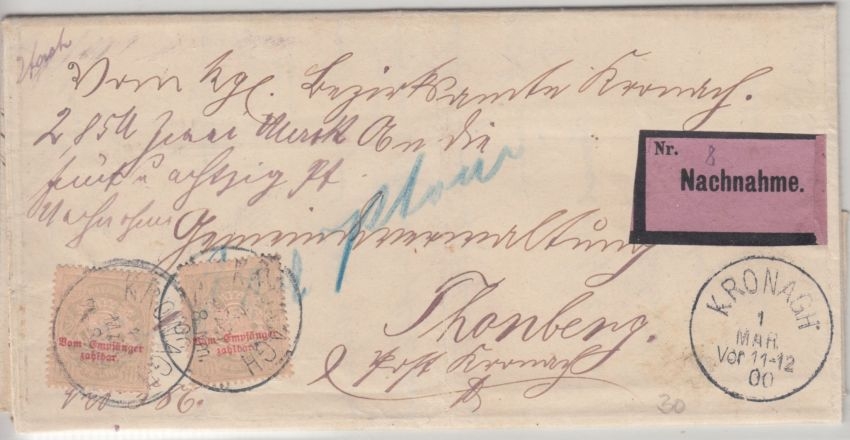 Vom Kgl. Bezirksamte Kronach.
2 85 Zwei Mark An die
fünf u achtzig Pf
Nachnahme
Gemeindeverwaltung
Thonberg.
Post Kronach
Nr. 8
Nachnahme.
KRONACH
1
MÄR.
Vor 11-12
00
KRONACH
Vom Empfänger
zahlbar.
KRONACH
Vom Empfänger
zahlbar.
30